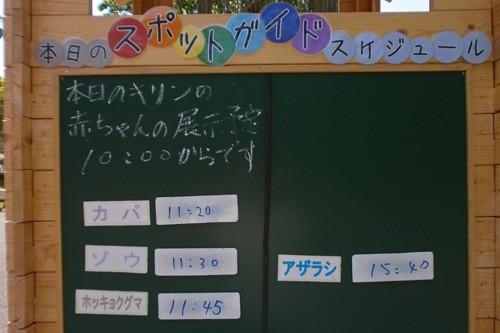 本日のスポットガイドスケジュール
本日のキリンの
赤ちゃんの展示予定
10:00からです
カバ 11:20
ゾウ 11:30
ホッキョクグマ 11:45
アザラシ 15:40